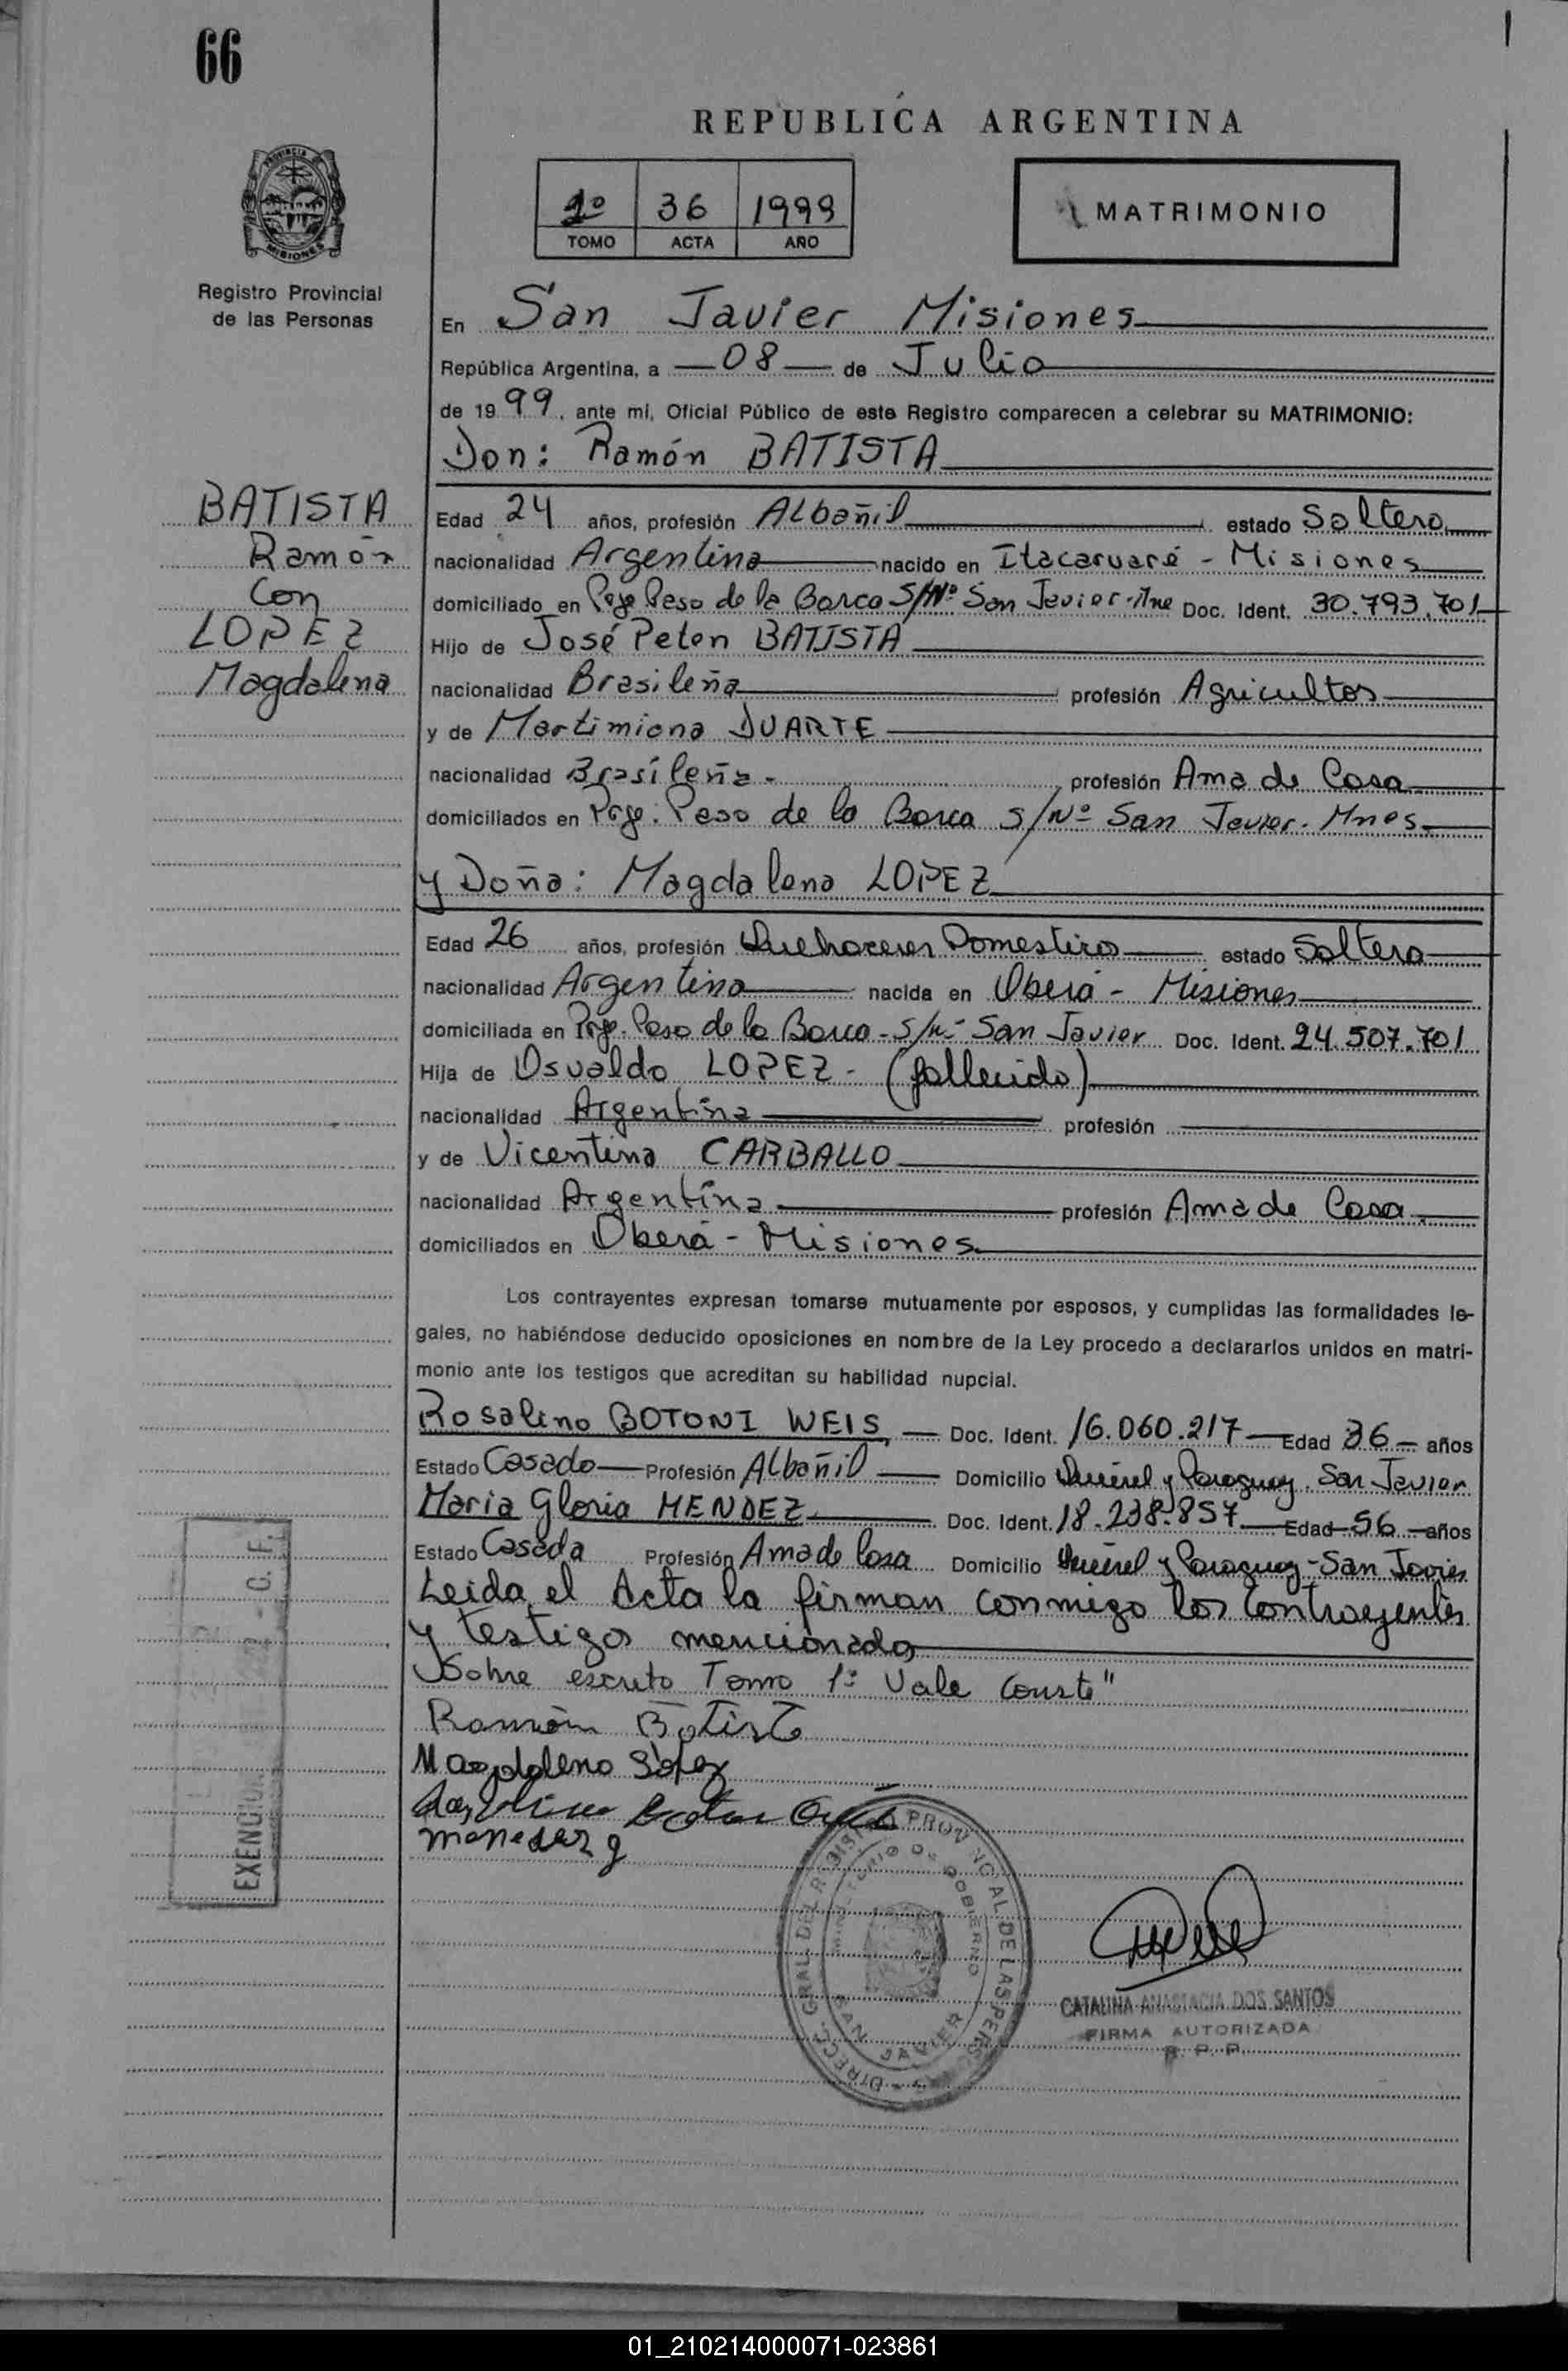 66
REPUBLICA ARGENTINA
1º 36 1999
TOMO ACTA AÑO
MATRIMONIO
PROVINCIA
MISIONES
Registro Provincial
de las Personas
En San Javier Misiones
República Argentina, a 08 de Julio
de 1999, ante mi, Oficial Público de este Registro comparecen a celebrar su MATRIMONIO:
Don: Ramón BATISTA
BATISTA
Ramón
Con
LOPEZ
Magdalena
Edad 24 años, profesión Albañil estado Soltero
nacionalidad Argentina nacido en Itacaruaré - Misiones
domiciliado en Paso de la Barca S/Nº San Javier Doc. Ident. 30.793.701
Hijo de José Peton BATISTA
nacionalidad Brasileña profesión Agricultor
y de Martimiana DUARTE
nacionalidad Brasileña profesión Ama de Casa
domiciliados en Pje. Paso de la Barca S/Nº San Javier. Mnes
y Doña: Magdalena LOPEZ
Edad 26 años, profesión Quehaceres Domestico estado Soltera
nacionalidad Argentina nacida en Oberá - Misiones
domiciliada en Pje. Paso de la Barca - S/Nº San Javier Doc. Ident. 24.507.701
Hija de Osvaldo LOPEZ - (fallecido)
nacionalidad Argentina profesión
y de Vicentina CARBALLO
nacionalidad Argentina profesión Ama de Casa
domiciliados en Oberá - Misiones
Los contrayentes expresan tomarse mutuamente por esposos, y cumplidas las formalidades le-
gales, no habiéndose deducido oposiciones en nombre de la Ley procedo a declararlos unidos en matri-
monio ante los testigos que acreditan su habilidad nupcial.
Rosalino BOTONI WEIS, Doc. Ident. 16.060.217 Edad 36 años
Estado Casado Profesión Albañil Domicilio y Paraguay, San Javier
Maria Gloria MENDEZ Doc. Ident. 18.238.857 Edad 56 años
Estado Casada Profesión Ama de Casa Domicilio y Paraguay - San Javier
Leida el Acta la firman conmigo los contrayentes
y testigos mencionado
Sobre escrito Tomo 1º Vale Conste"
Ramón Batista
Magdalena López
EXENCION C. F.
DIRECC. GRAL. DEL REGISTRO PROVINCIAL DE LAS PERSONAS
MINISTERIO DE GOBIERNO
SAN JAVIER
CATALINA ANASTACIA DOS SANTOS
FIRMA AUTORIZADA
R. P. P.
01_210214000071-023861